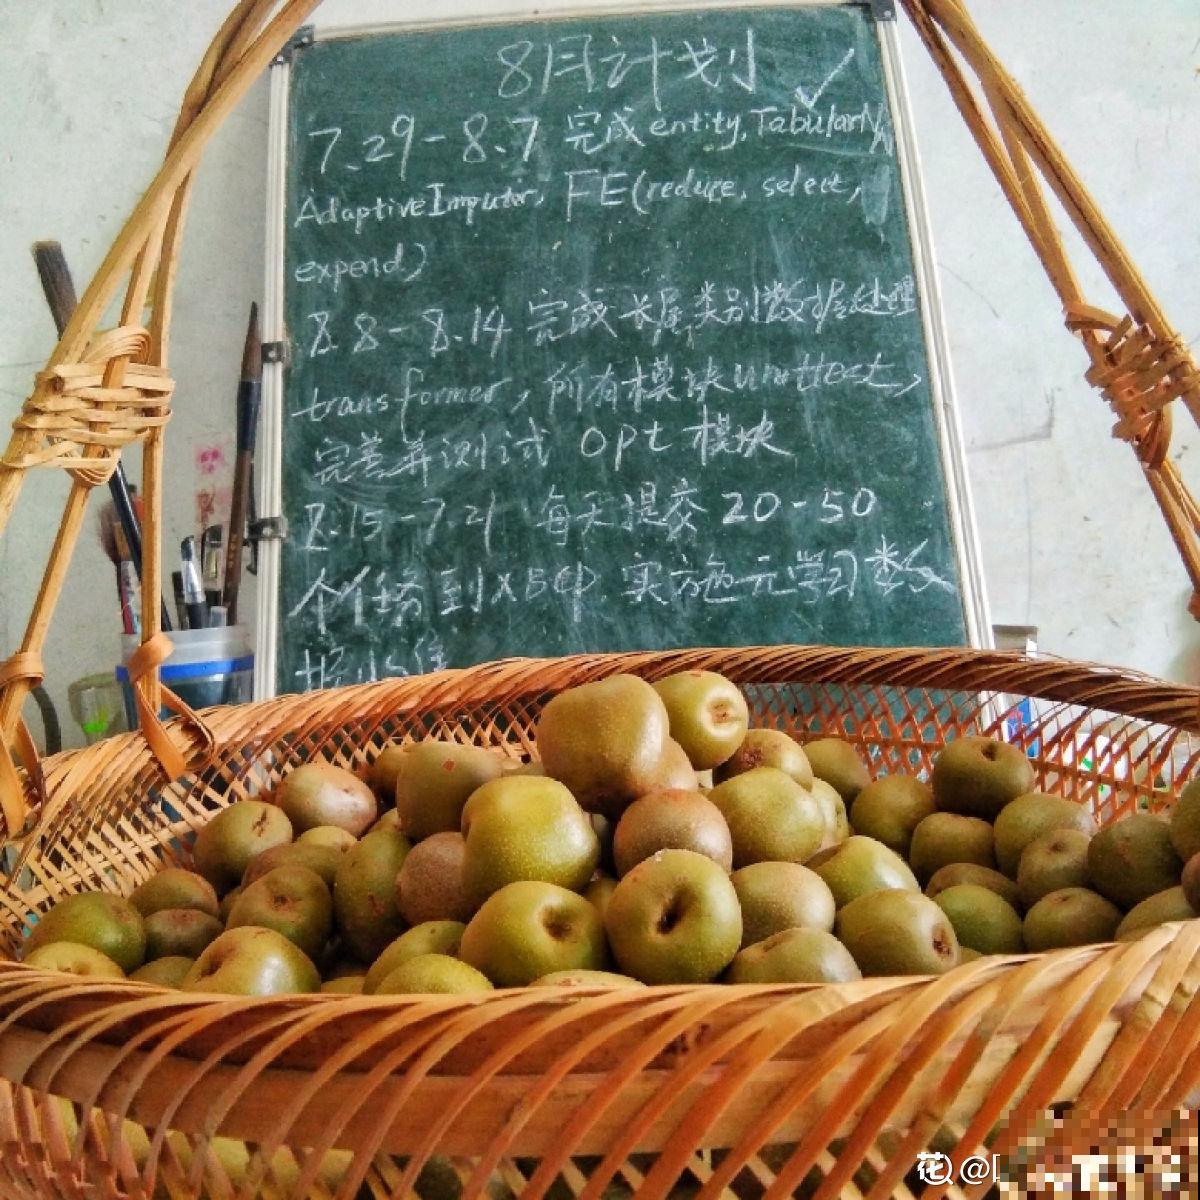 8月计划
7.29-8.7 完成entity, TabularNN
AdaptiveImputer, FE(reduce, select,
expend)
8.8-8.14 完成长尾类别数据处理
transformer, 所有模块unittest,
完善并测试 opt 模块
8.15-7.21 每天提交20-50
个任务到XBCP. 实施元学习数
据收集
花 @